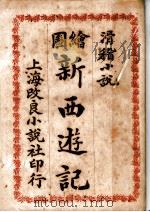 滑稽小說
繪圖
新西遊記
上海改良小說社印行